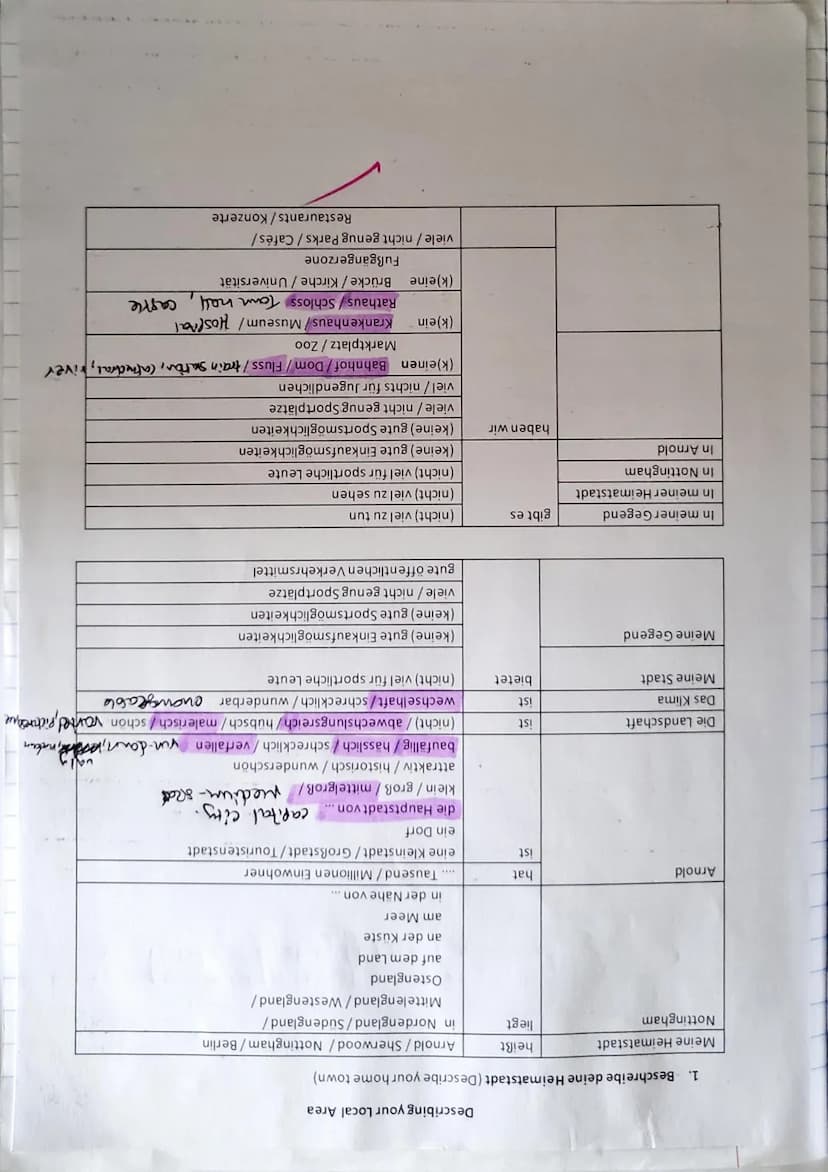 Describing your Local Area
1. Beschreibe deine Heimatstadt (Describe your home town)
Meine Heimatstadt heißt Arnold / Sherwood / Nottingham / Berlin
Nottingham liegt in Nordengland / Südengland /
Mittelengland / Westengland /
Ostengland
auf dem Land
an der Küste
am Meer
in der Nähe von ...
Arnold hat .... Tausend / Millionen Einwohner
ist eine Kleinstadt / Großstadt / Touristenstadt
ein Dorf
die Hauptstadt von ... capital city.
klein / groß / mittelgroß / medium-
attraktiv / historisch / wunderschön
baufällig / hässlich / schrecklich / verfallen run-down, ugly
Die Landschaft ist (nicht) / abwechslungsreich / hübsch / malerisch / schön
Das Klima ist wechselhaft / schrecklich / wunderbar
Meine Stadt bietet (nicht) viel für sportliche Leute
Meine Gegend (keine) gute Einkaufsmöglichkeiten
(keine) gute Sportsmöglichkeiten
viele / nicht genug Sportplätze
gute öffentlichen Verkehrsmittel
In meiner Gegend gibt es (nicht) viel zu tun
In meiner Heimatstadt (nicht) viel zu sehen
In Nottingham (nicht) viel für sportliche Leute
In Arnold (keine) gute Einkaufsmöglichkeiten
haben wir (keine) gute Sportsmöglichkeiten
viele / nicht genug Sportplätze
viel / nichts für Jugendlichen
(k)einen Bahnhof / Dom / Fluss / train station, cathedral, river
Marktplatz / Zoo
(k)ein Krankenhaus / Museum / Hospital
Rathaus / Schloss Town hall, castle
(k)eine Brücke / Kirche / Universität
Fußgängerzone
viele / nicht genug Parks / Cafés /
Restaurants / Konzerte